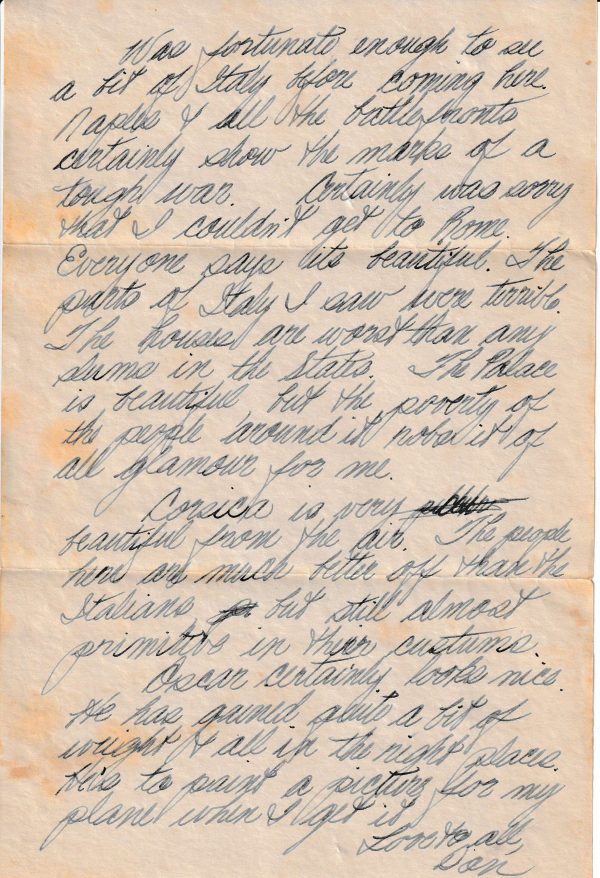 Was fortunate enough to see
a bit of Italy before coming here.
Naples & all the battlefronts
certainly show the marks of a
tough war. Certainly was sorry
that I couldn't get to Rome.
Everyone says its beautiful. The
parts of Italy I saw were terrible.
The houses are worst than any
slums in the States. The Palace
is beautiful but the poverty of
the people around it robs it of
all glamour for me.
Corsica is very
beautiful from the air. The people
here are much better off than the
Italians but still almost
primitive in their customs.
Oscar certainly looks nice.
He has gained quite a bit of
weight & all in the right places.
He's to paint a picture for my
plane when I get it.
Love to all,
Don